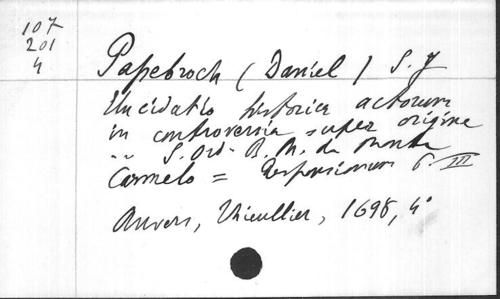 107
201
4
Papebroch (Daniel) S. J
Elucidatio historica actorum
in controversia super origine
.. S. Ord. B. M. de Monte
Carmelo = Responsionum P. III
Anvers, Thieullier, 1698, 4°